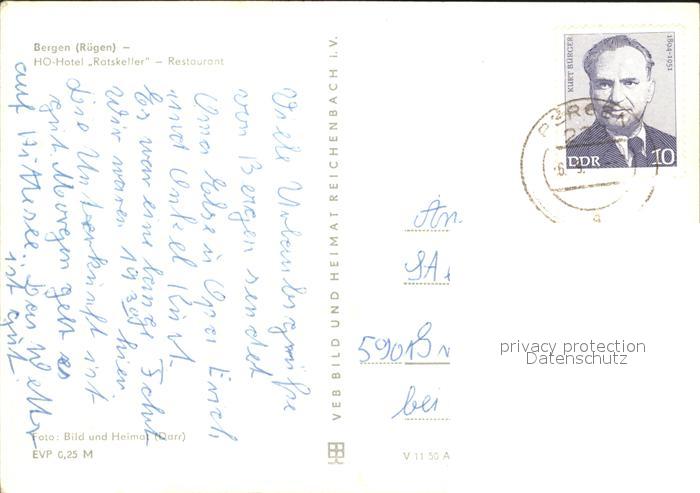 Bergen (Rügen) –
HO-Hotel „Ratskeller" – Restaurant
Viele Urlaubsgrüße
von Bergen sendet
Oma Else u. Opa Erich
und Onkel Kurt.
Es war eine lange Fahrt
Wir waren 19 30 hier
Die Unterkunft ist
gut. Morgen geht es
auf Hittesee. Das Wetter
ist gut.
Foto: Bild und Heimat (Darr)
EVP 0,25 M
VEB BILD UND HEIMAT REICHENBACH i. V.
V 11 50 A
KURT BÜRGER
1894-1951
DDR 10
An
5901
bei
privacy protection
Datenschutz